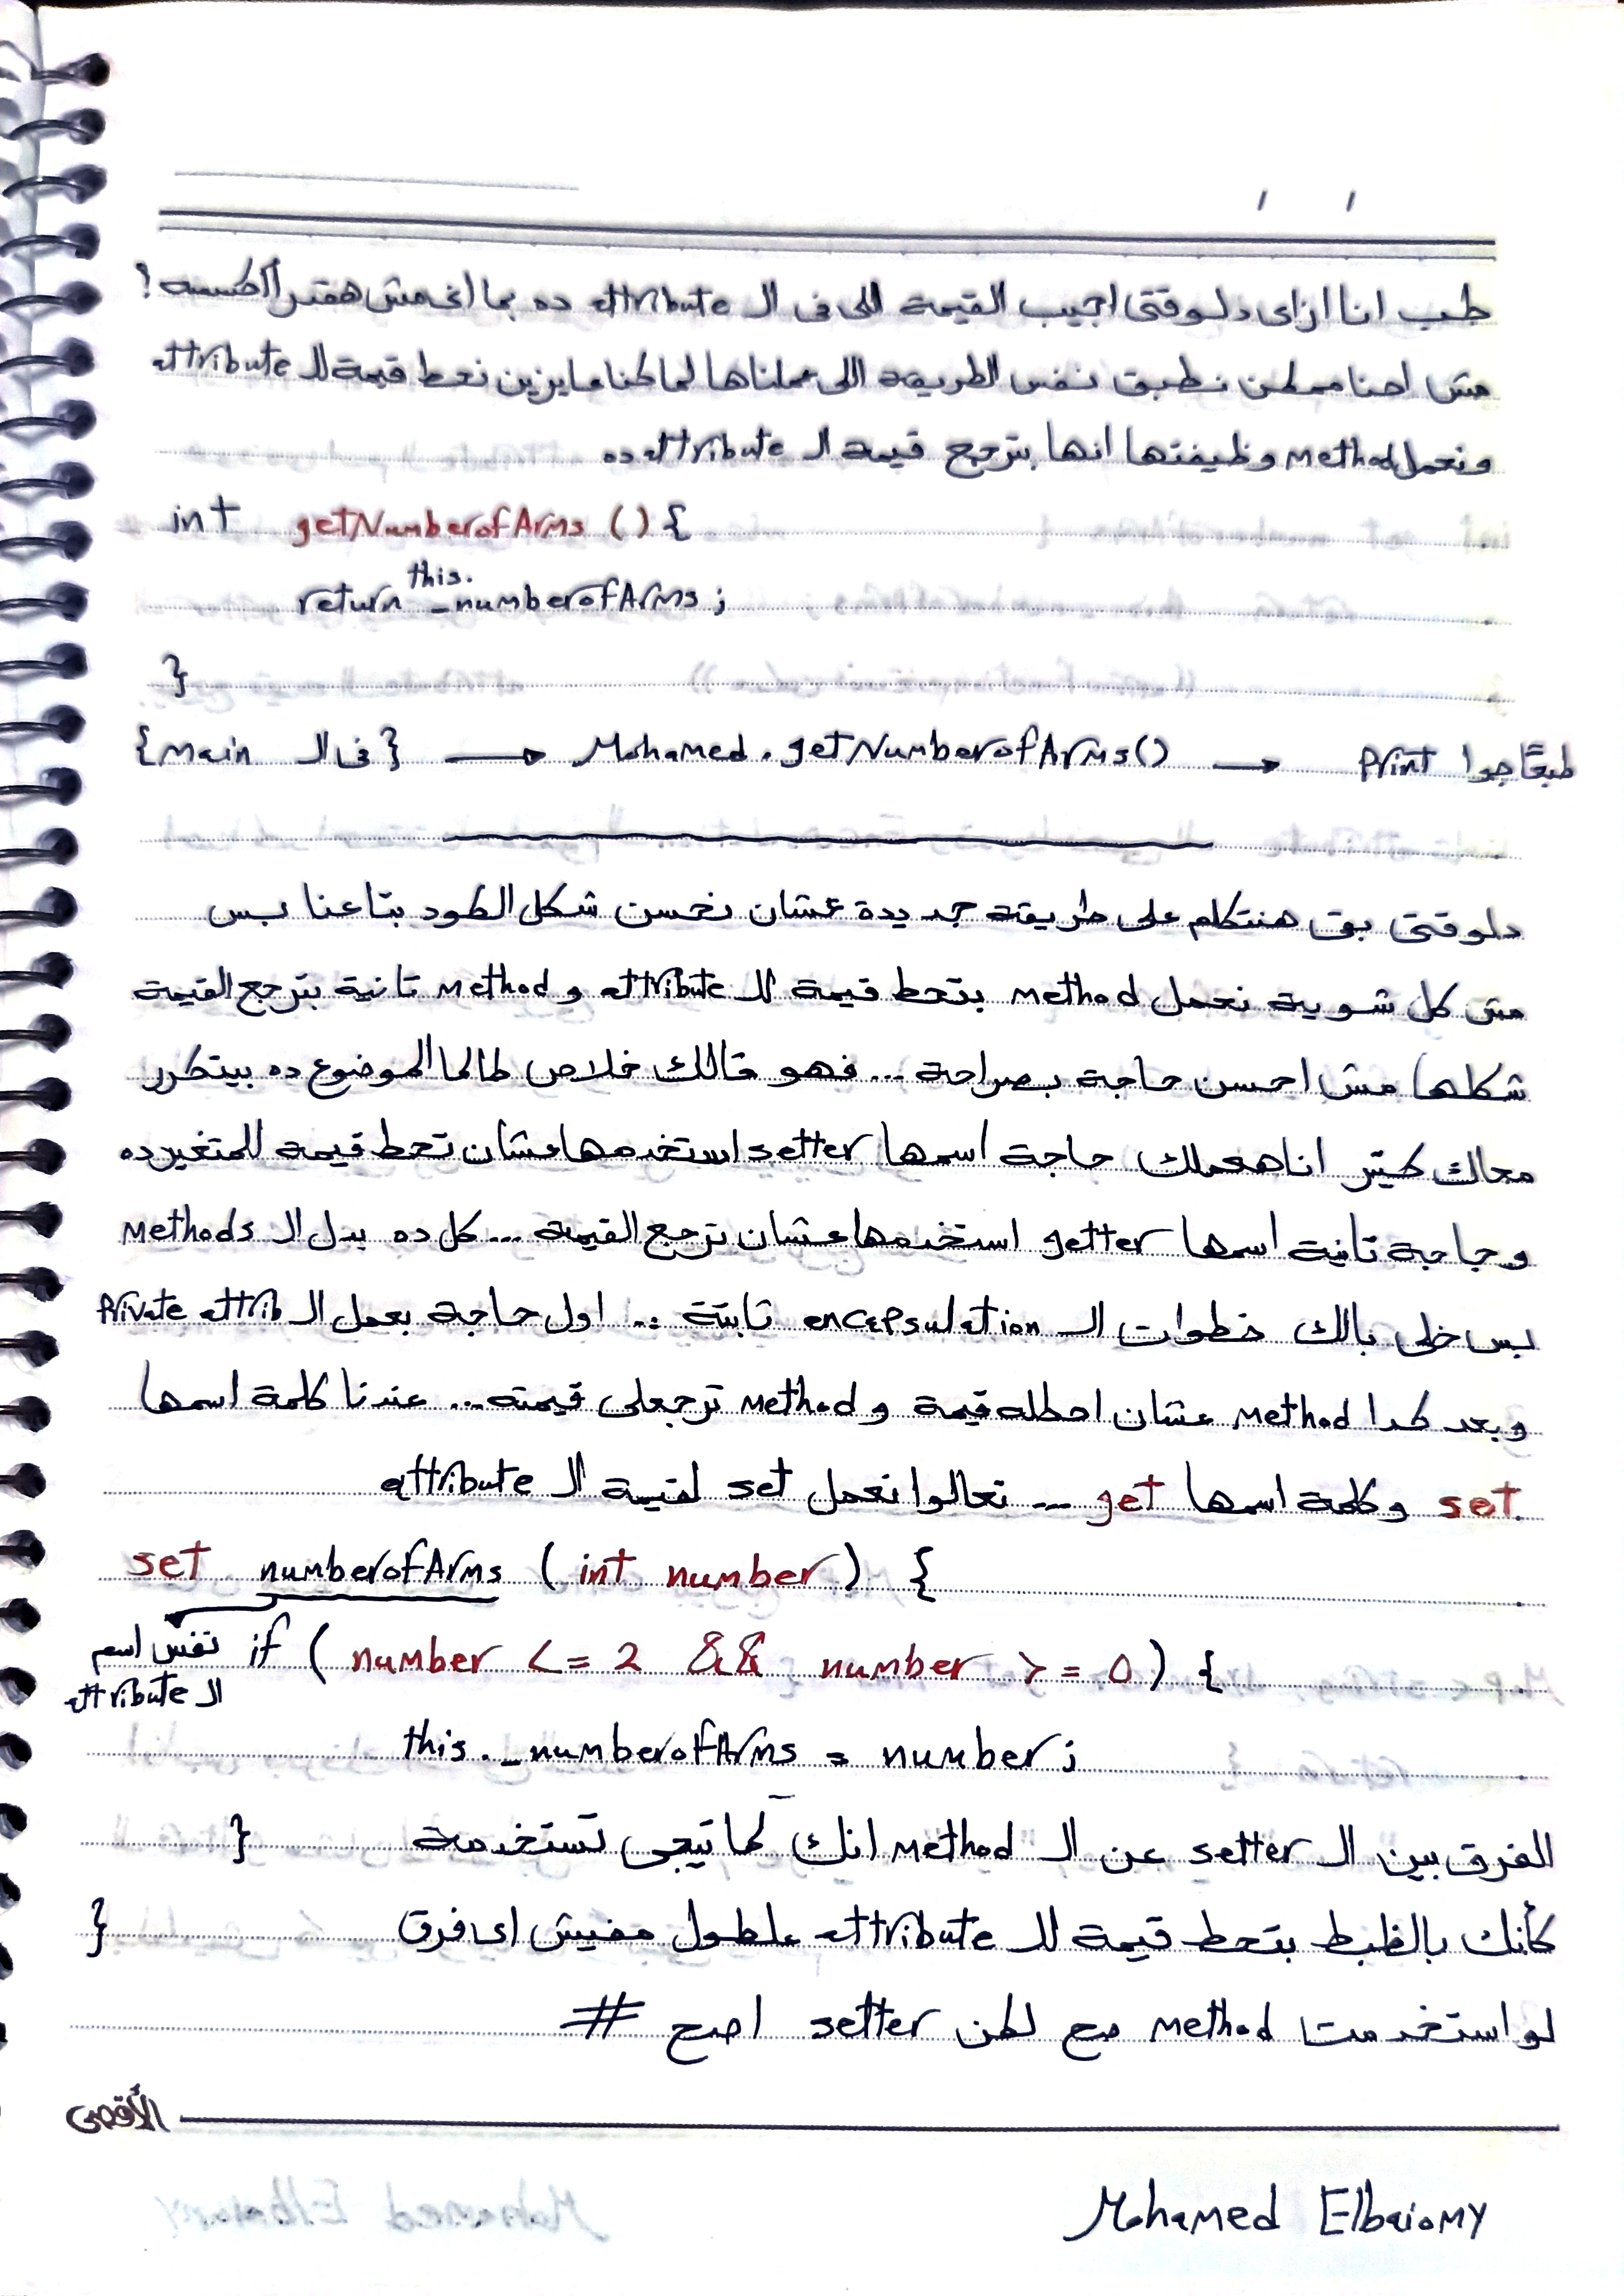 طب انا ازاى دلوقتى اجيب القيمة اللى فى ال attribute ده بما انى مش هقدر اكسسه ؟
مش احنا ممكن نطبق نفس الطريقة اللى عملناها لما كنا عايزين نحط قيمة لل attribute
ونعمل method وظيفتها انها بترجع قيمة ال attribute ده
int getNumberofArms () {
this.
return _numberofArms ;
}
{main فى ال} → Mohamed.getNumberofArms() → print طبعًا جوا
دلوقتى بقى هنتكلم على طريقة جديدة عشان نحسن شكل الكود بتاعنا بس
مش كل شوية نعمل method بتحط قيمة لل attribute و method تانية بترجع القيمة
شكلها مش احسن حاجة بصراحة ... فهو قالك خلاص طالما الموضوع ده بيتكرر
معاك كتير انا هعملك حاجة اسمها setter استخدمها عشان تحط قيمة للمتغير ده
وحاجة تانية اسمها getter استخدمها عشان ترجع القيمة ... كل ده بدل ال methods
بس خلى بالك خطوات ال encapsulation ثابتة ... اول حاجة بعمل ال private attrib
وبعد كدا method عشان احطله قيمة و method ترجعلى قيمته ... عندنا كلمة اسمها
set وكلمة اسمها get ... تعالوا نعمل set لقيمة ال attribute
set numberofArms ( int number ) {
نفس اسم
ال attribute
if ( number <= 2 && number >= 0 ) {
this._numberofArms = number ;
}
الفرق بين ال setter عن ال method انك لما تيجى تستخدمة
}
كأنك بالظبط بتحط قيمة لل attribute علطول مفيش اى فرق
لو استخدمت method صح لكن setter اصح #
الأقصى
Mohamed Elbaiomy